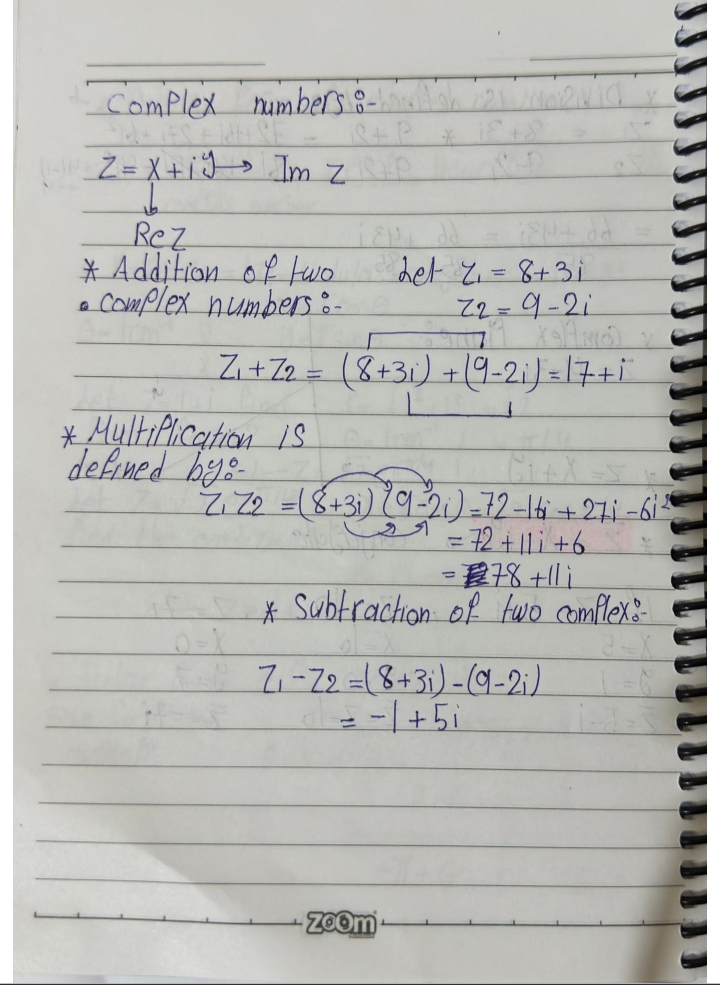 Complex numbers:-
Z = x + iy → Im Z
↓
Re Z
* Addition of two Let Z₁ = 8+3i
• complex numbers:- Z2 = 9-2i
Z₁ + Z₂ = (8+3i) + (9-2i) = 17 + i
* Multiplication is
defined by:-
Z₁ Z2 = (8+3i) (9-2i) = 72 - 16i + 27i - 6i²
= 72 + 11i + 6
= 78 + 11i
* Subtraction of two complex:-
Z₁ - Z2 = (8+3i) - (9-2i)
= -1 + 5i
zoom